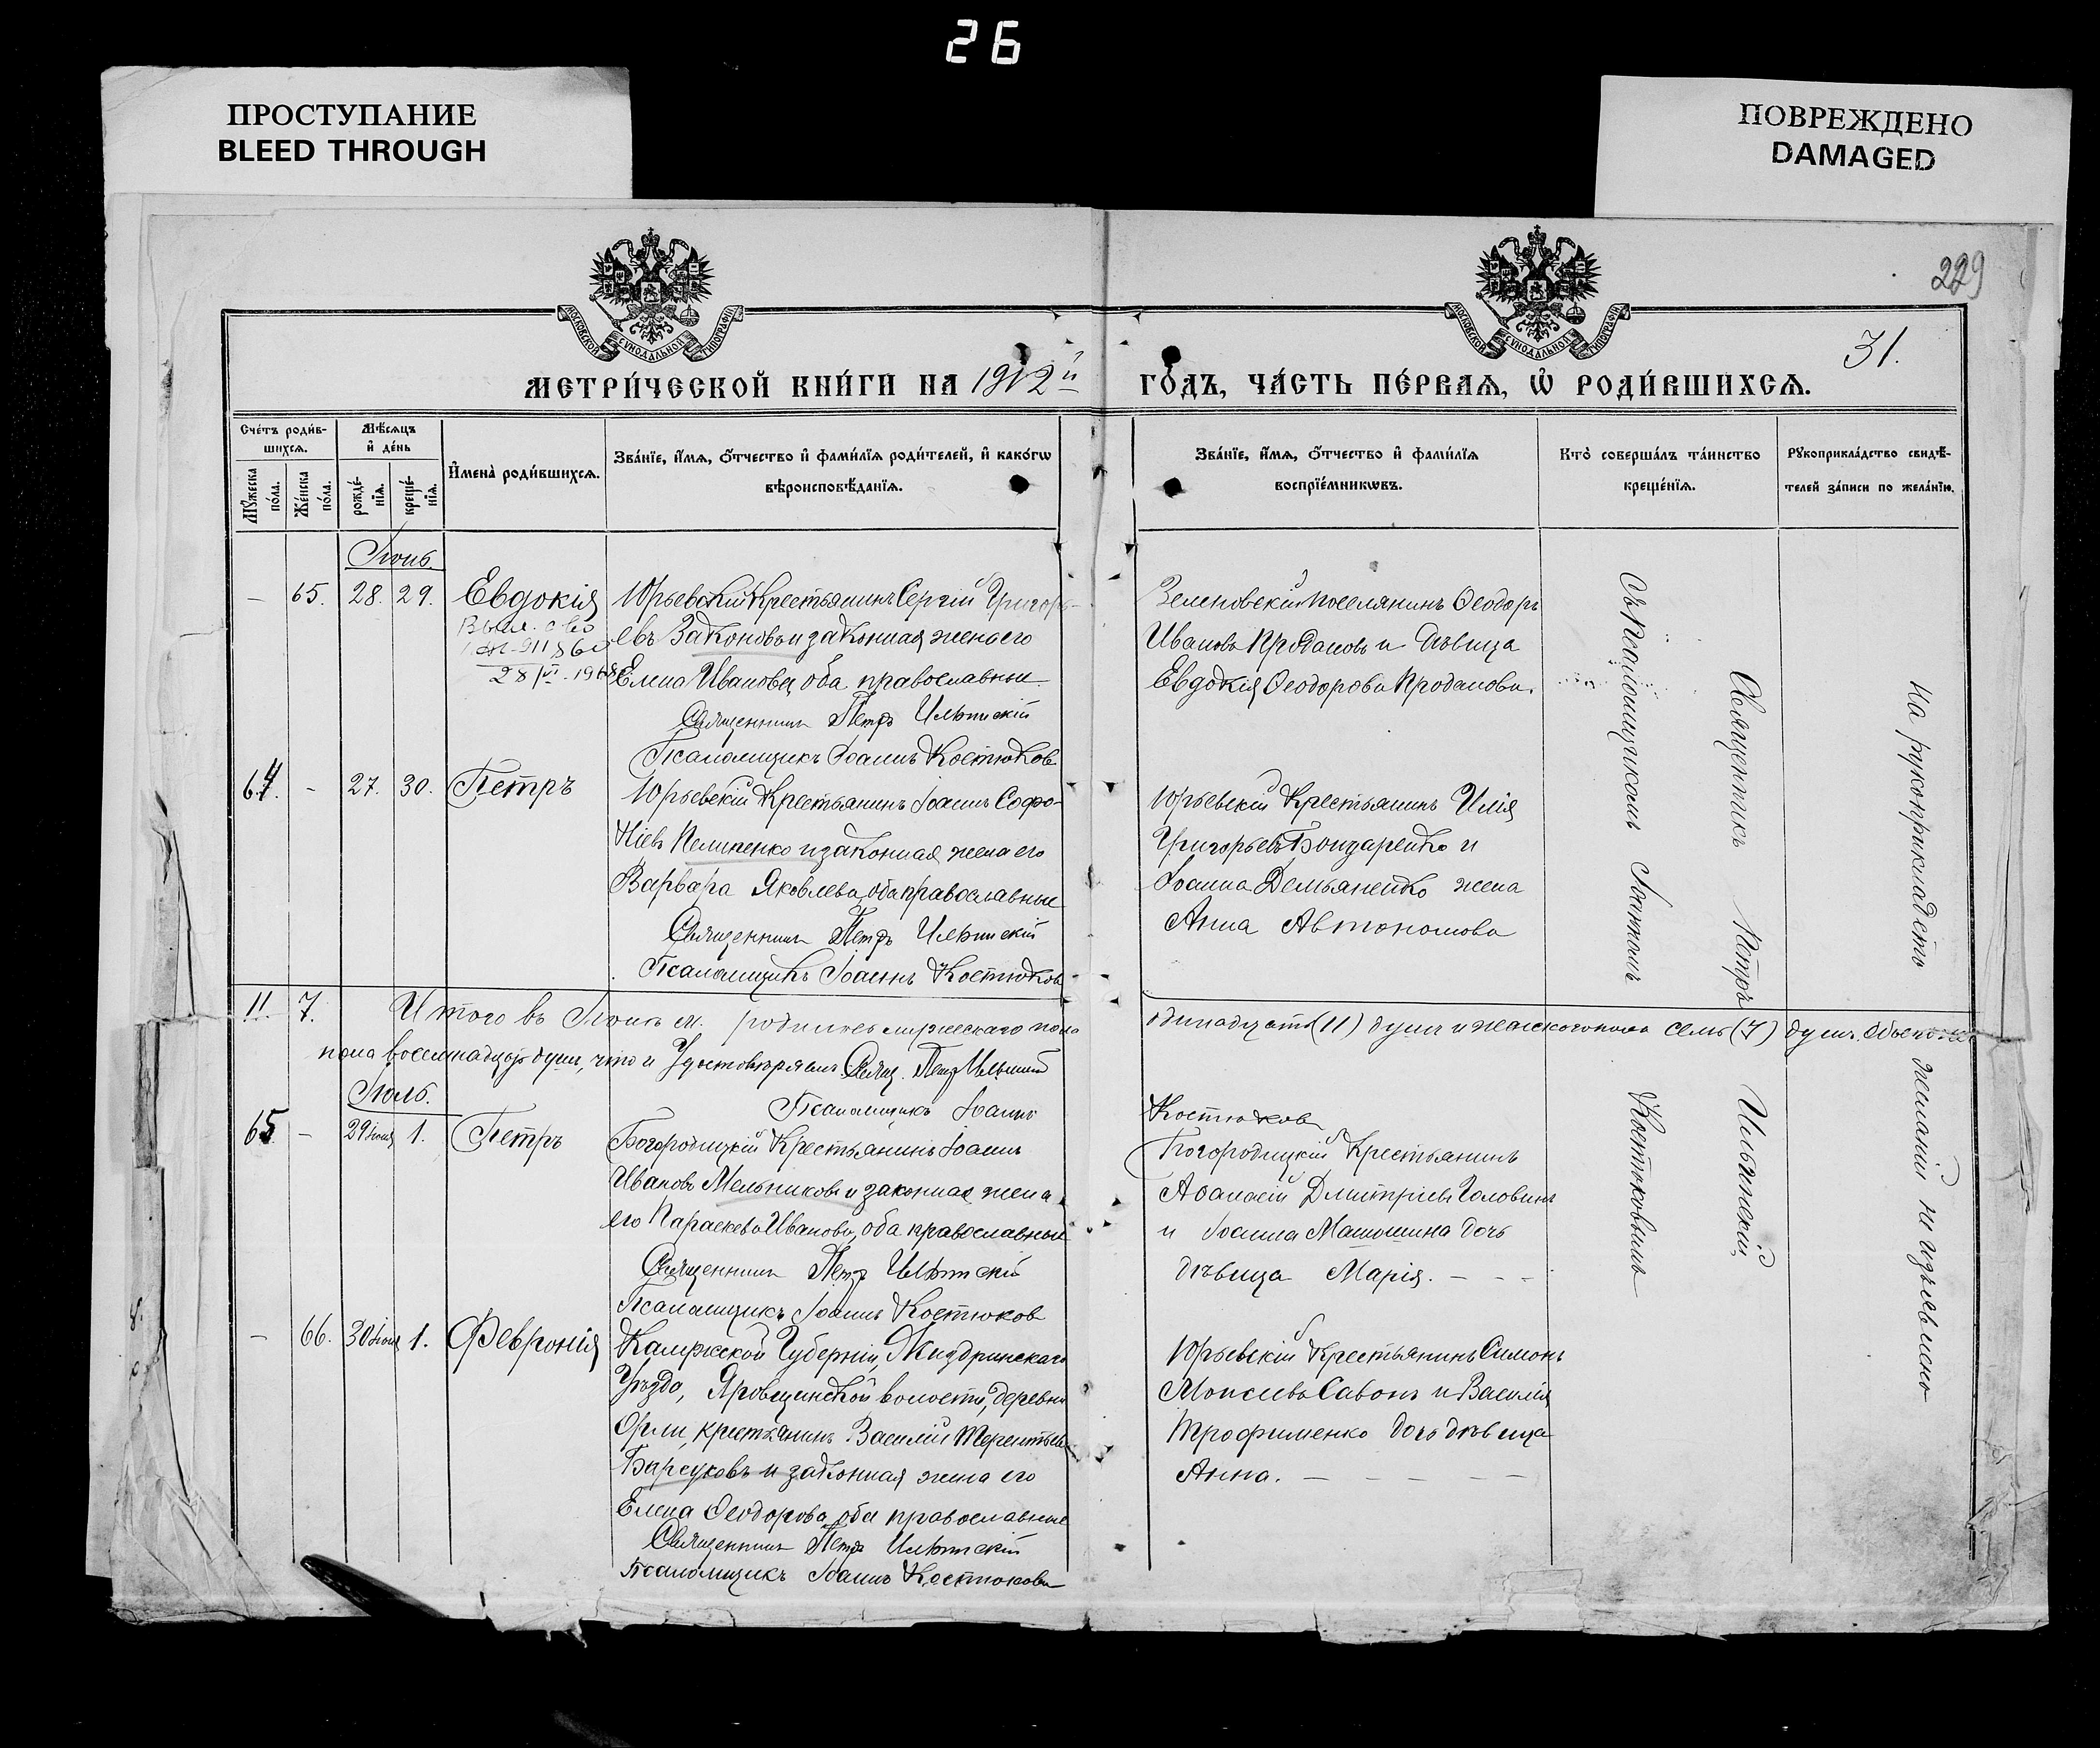 26
ПРОСТУПАНИЕ
BLEED THROUGH
ПОВРЕЖДЕНО
DAMAGED
229
31.
МОСКОВСКОЙ СѴНОДАЛЬНОЙ ТИПОГРАФІИ
МОСКОВСКОЙ СѴНОДАЛЬНОЙ ТИПОГРАФІИ
МЕТРИ́ЧЕСКОЙ КНИ́ГИ НА 1912й ГО́ДЪ, ЧА́СТЬ ПЕ́РВАѦ, Ѡ҆ РОДИ́ВШИХСѦ.
Сче́тъ роди́в-
шихсѧ.
Мꙋ́жеска
по́ла.
Же́нска
по́ла.
Мѣ́сѧцъ
и҆ де́нь
рожде́-
нїѧ.
креще́-
нїѧ.
И҆мена̀ роди́вшихсѧ.
Зва́нїе, и҆́мѧ, ѻ҆́тчество и҆ фами́лїѧ роди́телей, и҆ како́гѡ
вѣроисповѣ́данїѧ.
Зва́нїе, и҆́мѧ, ѻ҆́тчество и҆ фами́лїѧ
воспрїе́мникѡвъ.
Кто̀ соверша́лъ та́инство
креще́нїѧ.
Рꙋкоприкла́дство свидѣ́-
телей за́писи по жела́нїю.
Іюнь.
— 65. 28. 29. Евдокія
28/VI-1968
Юрьевскій Крестьянинъ Сергій Григорь-
евъ Законовъ и законная жена его
Елена Иванова, оба православные
Священникъ Петръ Ильинскій
Псаломщикъ Іоаннъ Костюковъ
Зеленовскій поселянинъ Ѳеодоръ
Ивановъ Продановъ и дѣвица
Евдокія Ѳеодорова Проданова.
64. - 27. 30. Петръ
Юрьевскій Крестьянинъ Іоаннъ Софо-
ніевъ Пелипенко и законная жена его
Варвара Яковлева, оба православные
Священникъ Петръ Ильинскій
Псаломщикъ Іоаннъ Костюковъ
Юрьевскій Крестьянинъ Илія
Григорьевъ Бондаренко и
Іоанна Демьяненко жена
Анна Автономова
11. 7. Итого въ Іюнѣ м. родилось мужескаго пола одинадцать (11) душъ и женскаго пола семь (7) душъ. Обоего
пола восемнадцать душъ, что и удостовѣряемъ Свящ. Петръ Ильинскій
Псаломщикъ Іоаннъ Костюковъ
Іюль.
65 - 29 іюня 1. Петръ
Богородицкій Крестьянинъ Іоаннъ
Ивановъ Мельниковъ и законная жена
его Параскева Иванова, оба православные
Священникъ Петръ Ильинскій
Псаломщикъ Іоаннъ Костюковъ
Богородицкій Крестьянинъ
Аѳанасій Дмитріевъ Головинъ
и Іоанна Мамошина дочь
дѣвица Марія. — - -
— 66. 30 іюня 1. Февронія
Калужской Губерніи, Жиздринскаго
Уѣзда, Яровщинской волости, деревни
Орли, крестьянинъ Василій Терентьевъ
Барсуковъ и законная жена его
Елена Ѳеодорова, оба православные
Священникъ Петръ Ильинскій
Псаломщикъ Іоаннъ Костюковъ
Юрьевскій Крестьянинъ Симонъ
Моисеевъ Савонъ и Василія
Трофименко дочь дѣвица
Анна. — — — — —
Священникъ Петръ Ильинскій
Съ Псаломщикомъ Іоанномъ Костюковымъ
На рукоприкладство желаній не изъявлено